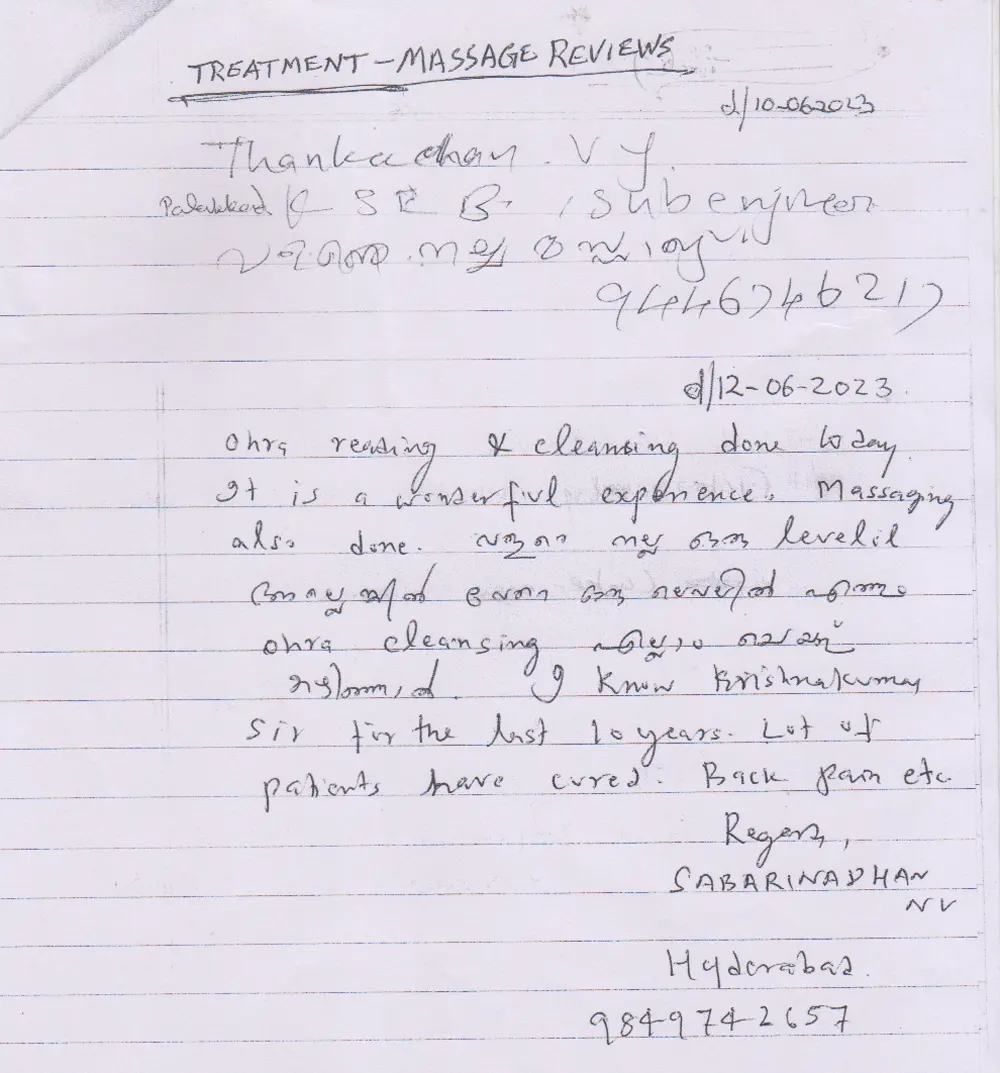 TREATMENT - MASSAGE REVIEWS
d/10-06-2023
Thankachan . V J.
Palakkad K S E B , Subengineer
വളരെ നല്ല
9446746217
d/12-06-2023.
Ohra reading & cleansing done today.
It is a wonderful experience. Massaging
also done. വളരെ നല്ല ഒരു levelil
വേറെ ഒരു ലെവലിൽ എത്തും
ohra cleansing എല്ലാം ചെയ്ത്
I know Krishnakumar
Sir for the last 10 years. Lot of
patients have cured. Back pain etc.
Regards,
SABARINADHAN
NV
Hyderabad.
9849742657